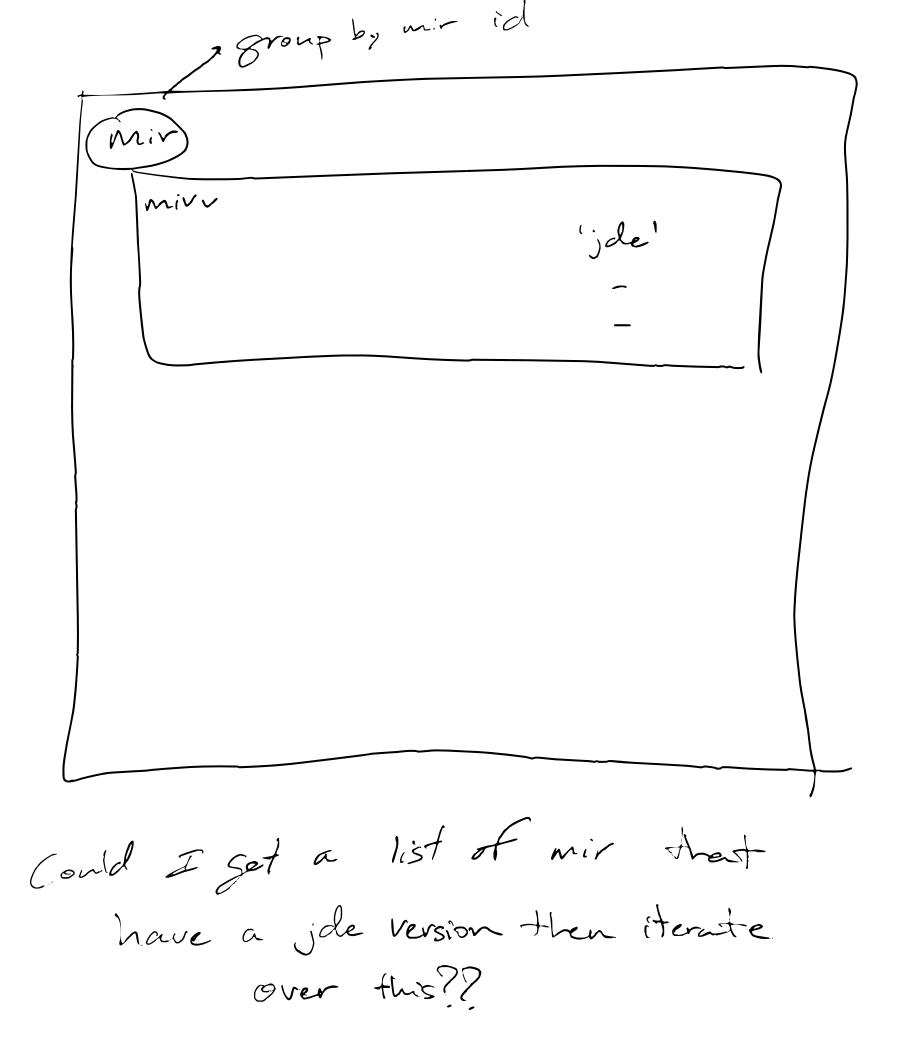 group by mir id
mir
mivv
'jde'
-
-
Could I get a list of mir that
have a jde version then iterate
over this??